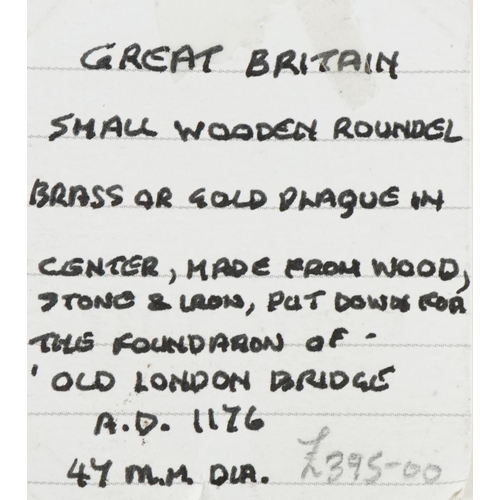 GREAT BRITAIN
SMALL WOODEN ROUNDEL
BRASS OR GOLD PLAQUE IN
CENTER, MADE FROM WOOD,
STONE & IRON, PUT DOWN FOR
THE FOUNDARON OF -
'OLD LONDON BRIDGE
A.D. 1176
47 M.M. DIA. £395-00